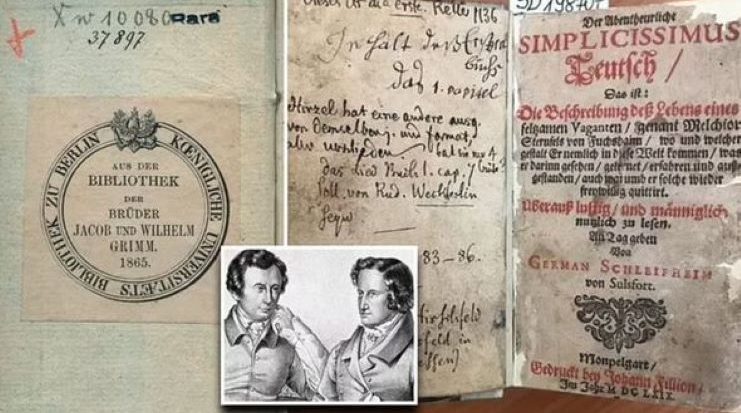 X w 10 080 Rara
37 897
KŒNIGLICHE UNIVERSITÆTS BIBLIOTHEK ZU BERLIN
AUS DER
BIBLIOTHEK
DER
BRÜDER
JACOB UND WILHELM
GRIMM.
1865.
die erste.
Inhalt deß Ersten
buchs
das 1. capitel
Hirzel hat eine andere ausg.
von demselben j. und format,
aber
das lied
cap. 7
soll. von Rud. Weckherlin
seyn
83–86.
Der Abentheurliche
SIMPLICISSIMUS
Teutsch /
Das ist:
Die Beschreibung deß Lebens eines
seltzamen Vaganten / genant Melchior
Sternfels von Fuchshaim / wo und welcher
gestalt Er nemlich in diese Welt kommen / was
er darinn gesehen / gelernet / erfahren und auß-
gestanden / auch warumb er solche wieder
freywillig quittirt.
Überauß lustig / und männiglich
nutzlich zu lesen.
An Tag geben
Von
GERMAN SCHLEIFHEIM
von Sulsfort.
Monpelgart /
Gedruckt bey Johann Fillion /
Im Jahr M DC LXIX.